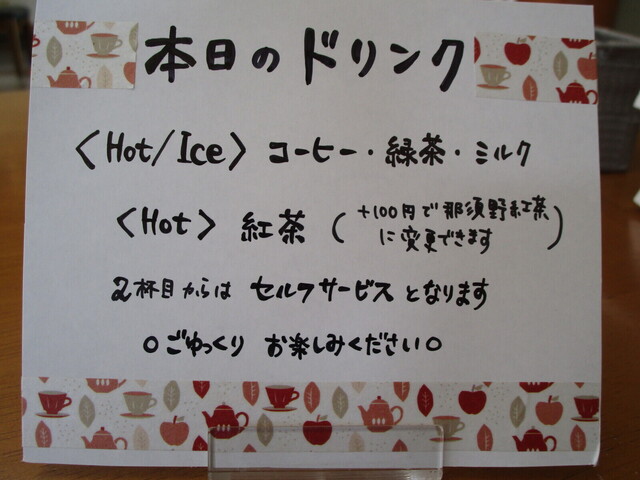 本日のドリンク
〈Hot/Ice〉コーヒー・緑茶・ミルク
〈Hot〉紅茶(+100円で那須野紅茶
に変更できます)
2杯目からはセルフサービスとなります
○ごゆっくり お楽しみください○